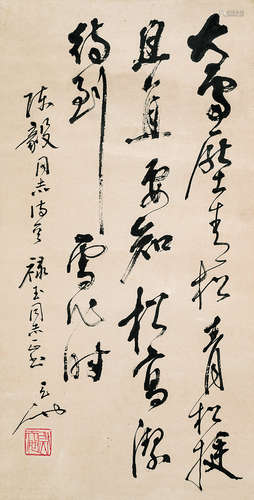 大雪壓青松青松挺
且直要知松高潔
待到雪化时
陈毅同志诗
同志正